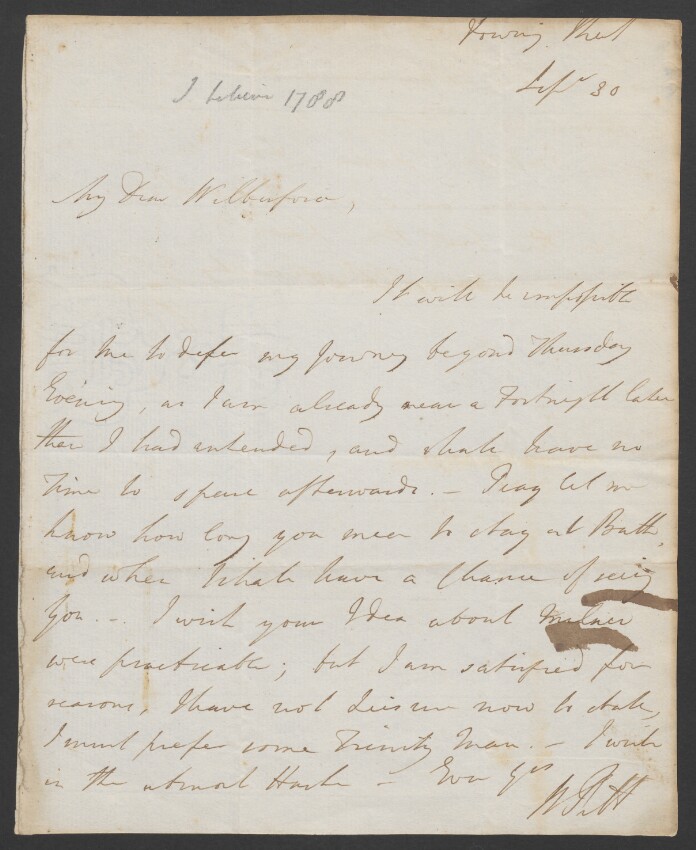 Downing Street
Sepr 30
I believe 1788
My Dear Wilberforce,
It will be impossible
for me to defer my Journey beyond Thursday
Evening, as I am already near a Fortnight later
than I had intended, and shall have no
Time to spare afterwards. - Pray let me
know how long you mean to stay at Bath,
and when I shall have a Chance of seeing
You. - I wish your Idea about Milner
were practicable; but I am satisfied for
reasons, I have not Leisure now to state,
I must prefer some Trinity Man. - I write
in the utmost Haste - Ever Yrs
W Pitt